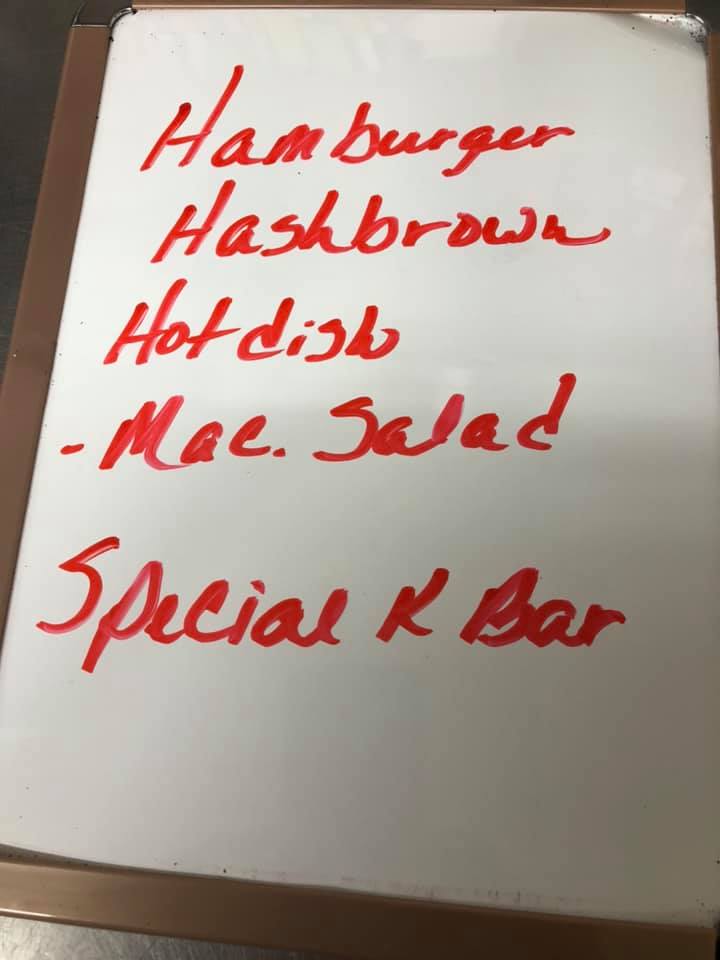 Hamburger
Hashbrown
Hotdish
- Mac. Salad
Special K Bar